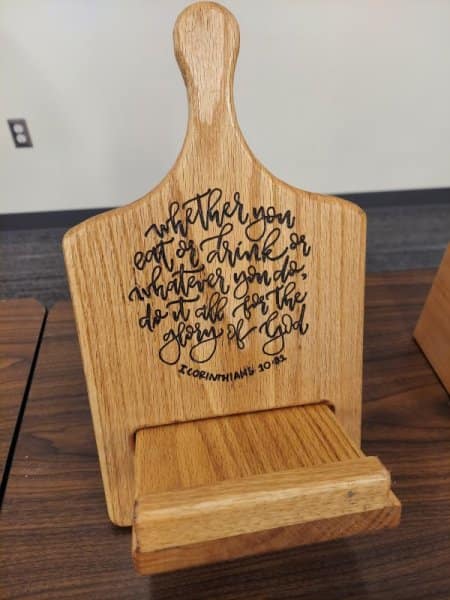 whether you
eat or drink or
whatever you do,
do it all for the
glory of God
1 CORINTHIANS 10:31